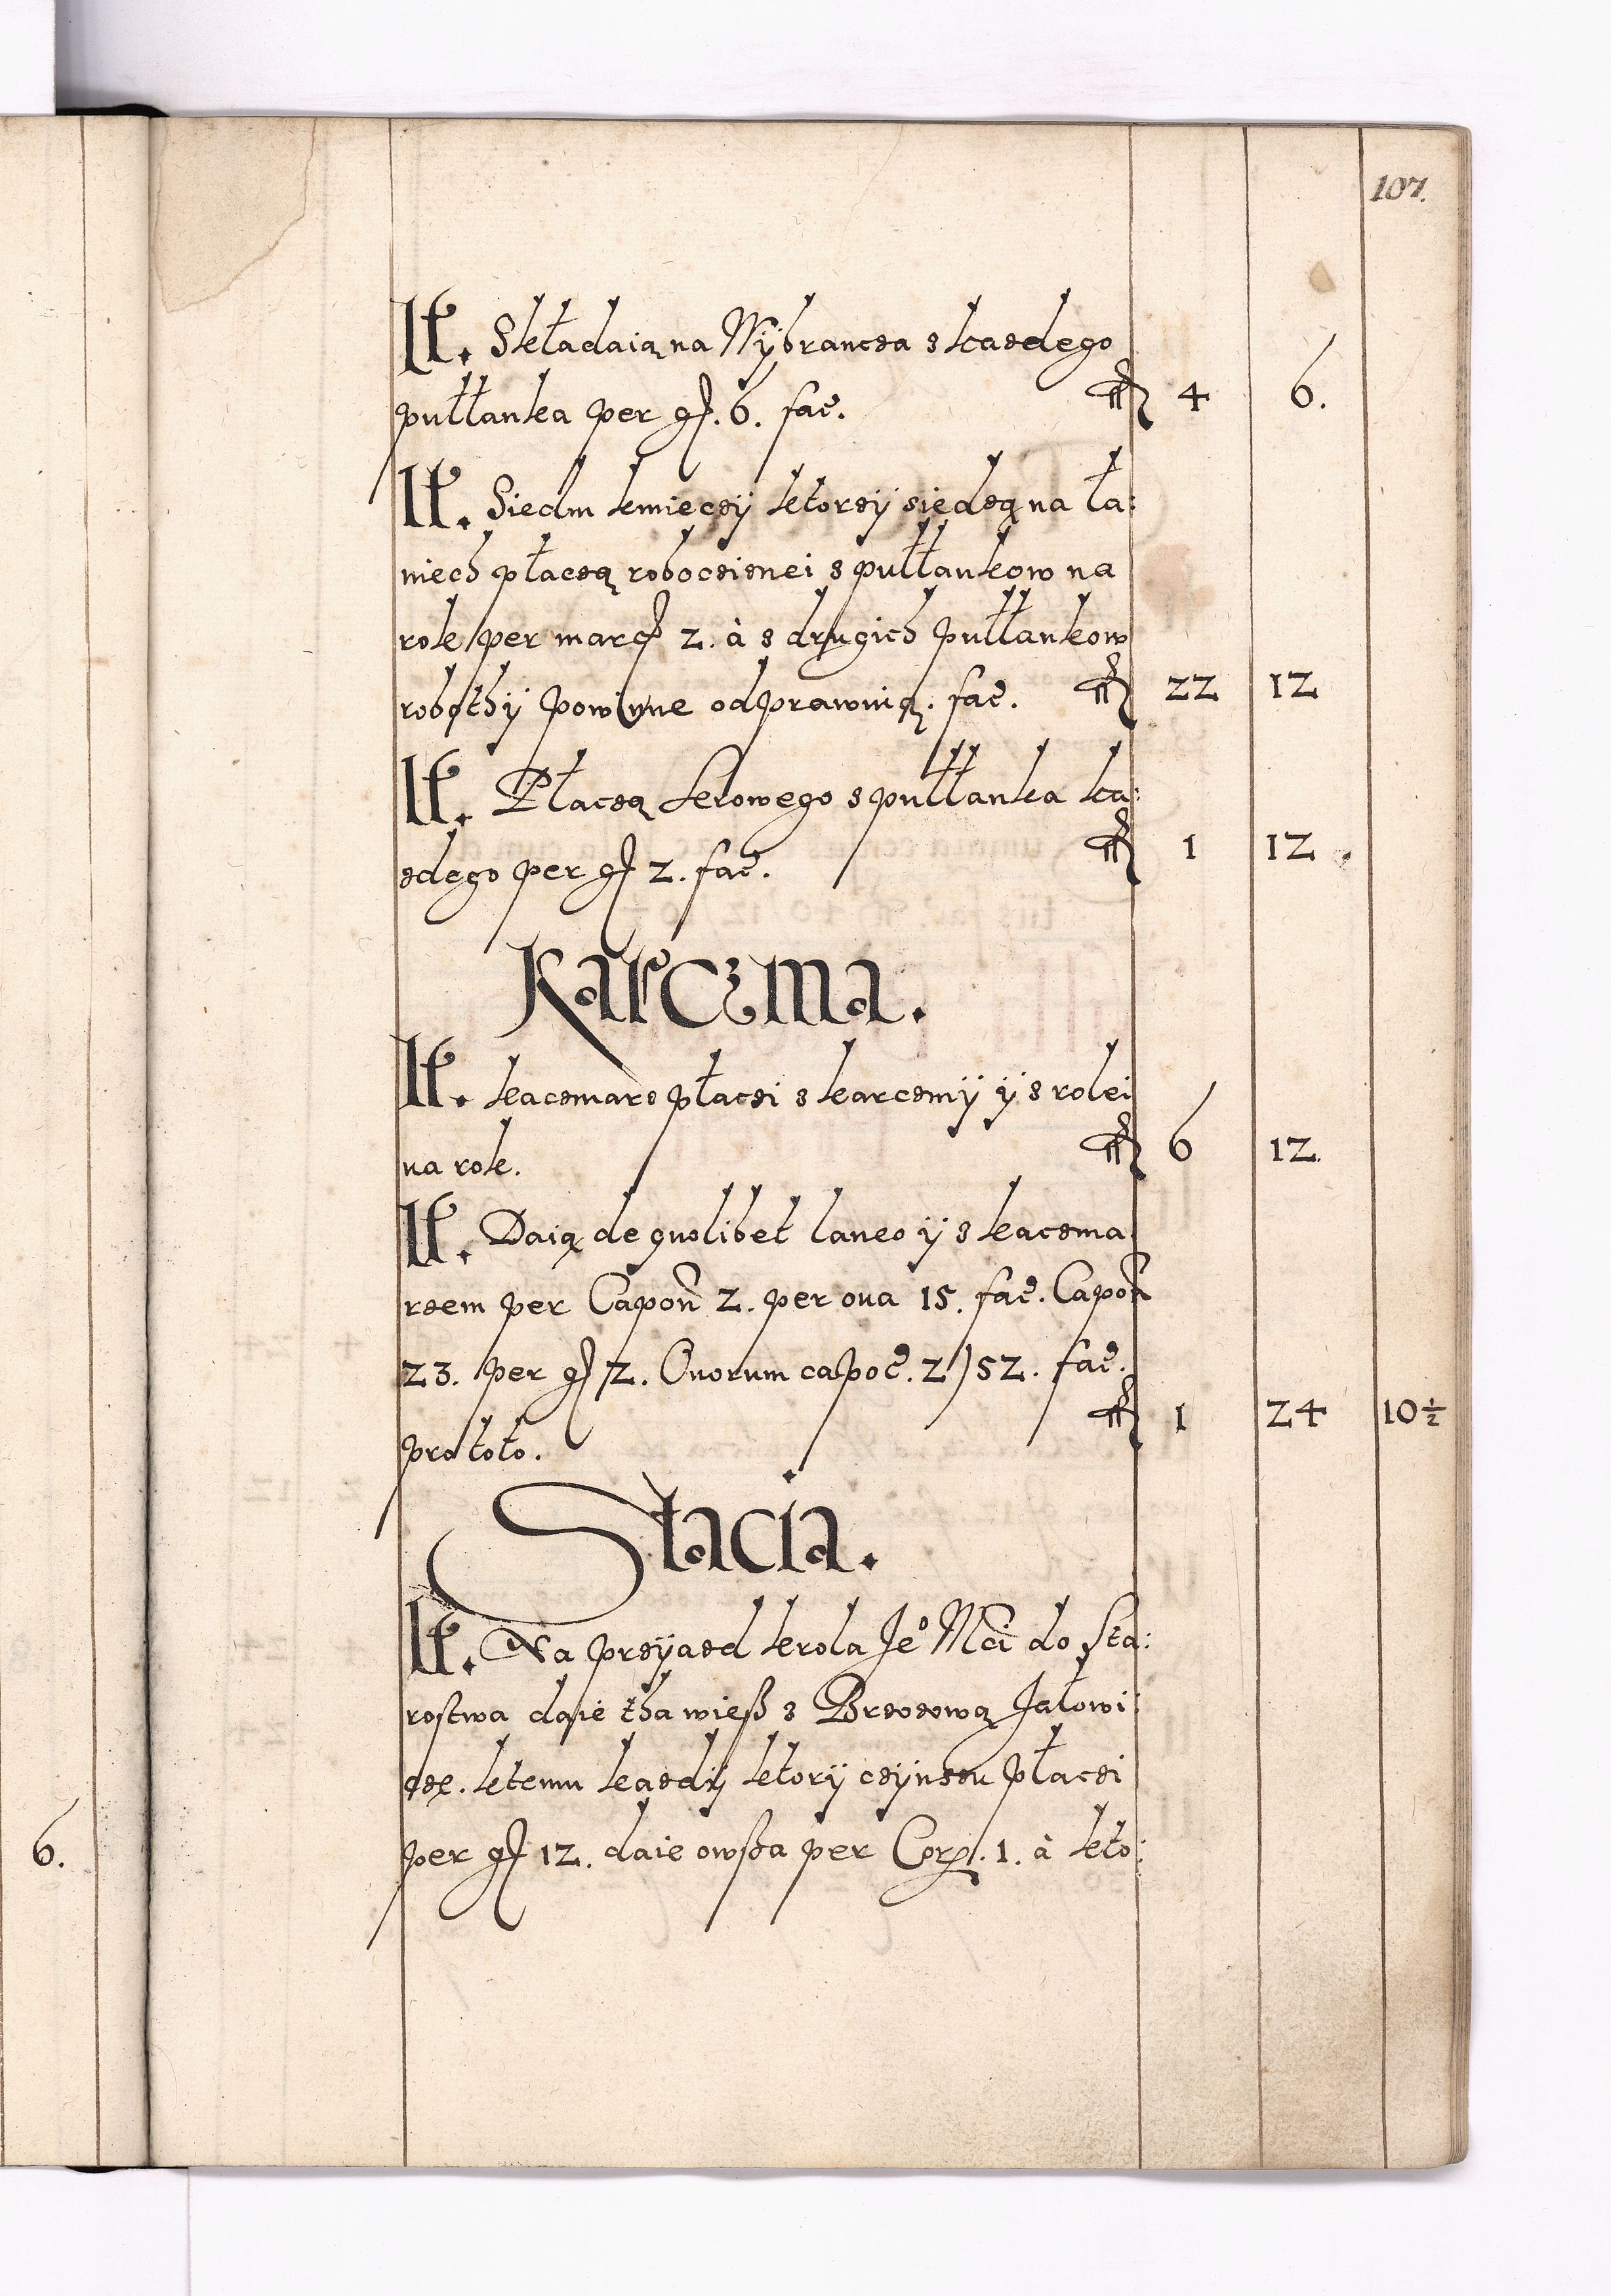 107.
It. Składaią na Wybrancza z kazdego
pułłanka per gr. 6. fac. fl 4 6.
It. Siedm kmieczy ktorzy siedzą na ła:
niech płaczą robocziznei z pułłankow na
rok per marcas 2. à z drugich pułłankow
robothy powinne odprawuią. fac. fl 22 12
It. Płaczą krowego z pułłanka ka:
zdego per gr 2. fac. fl 1 12.
Karczma.
It. kaczmarz płaczi z karczmy y z rolei
na rok. fl 6 12.
It. Daią de quolibet laneo y z kaczma
rzem per Capon 2. per oua 15. fac. Capon
23. per gr 2. Ouorum capoc. 2)52. fac.
pro toto. fl 1 24 10½
Stacia.
It. Na przyiazd krola Je° Mci do sta:
rostwa daie tha wieß z Brzozową Jałowi:
czę. ktemu kazdy ktory czynszu płaczi
per gr 12. daie owsza per Cor. 1. à kto:
6.